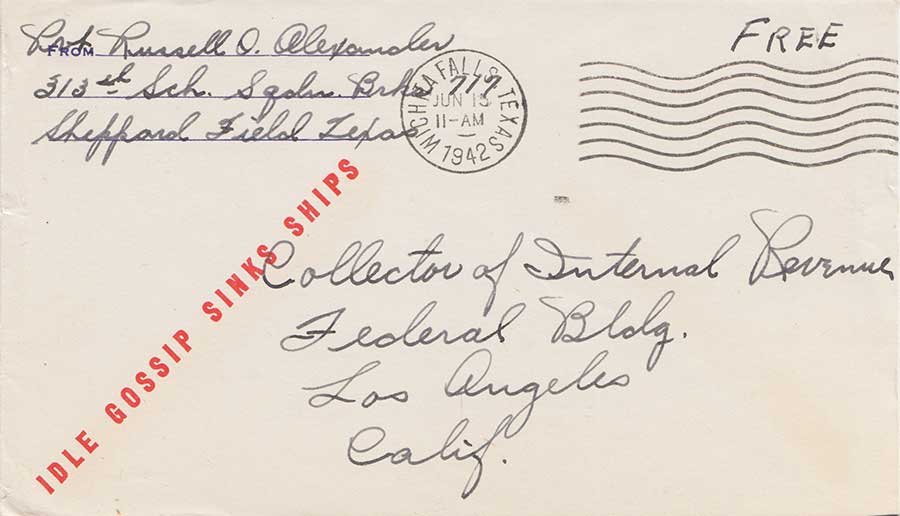 FROM Pvt. Russell O. Alexander
313th Sch. Sqdn. Brks 777
Sheppard Field Texas
WICHITA FALLS, TEXAS
JUN 13
11-AM
1942
FREE
IDLE GOSSIP SINKS SHIPS
Collector of Internal Revenue
Federal Bldg.
Los Angeles
Calif.